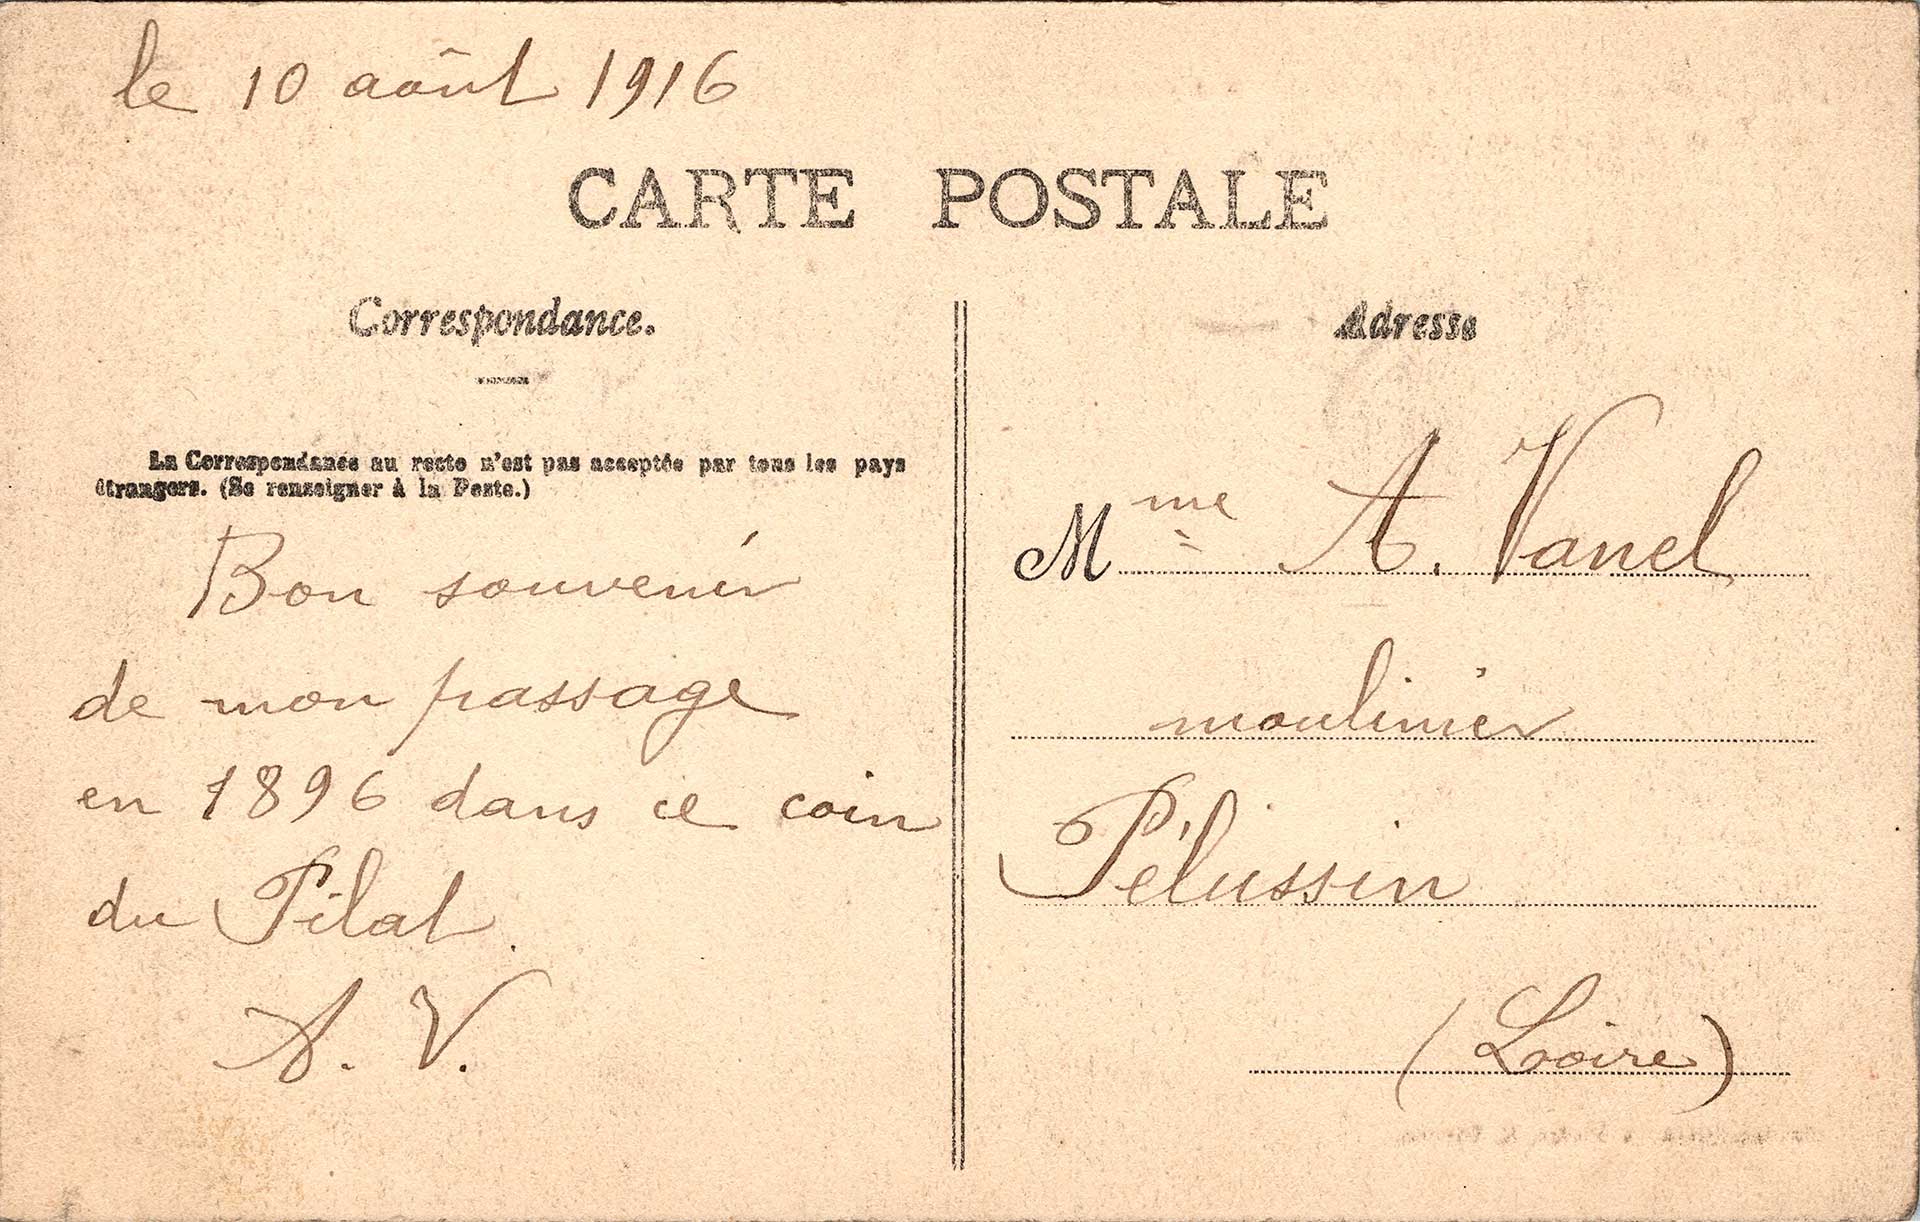 le 10 août 1916
CARTE POSTALE
Correspondance.
La Correspondance au recto n'est pas acceptée par tous les pays
étrangers. (Se renseigner à la Poste.)
Bon souvenir
de mon passage
en 1896 dans ce coin
du Pilat.
A. V.
Adresse
Mme A. Vanel
moulinier
Pélussin
(Loire)